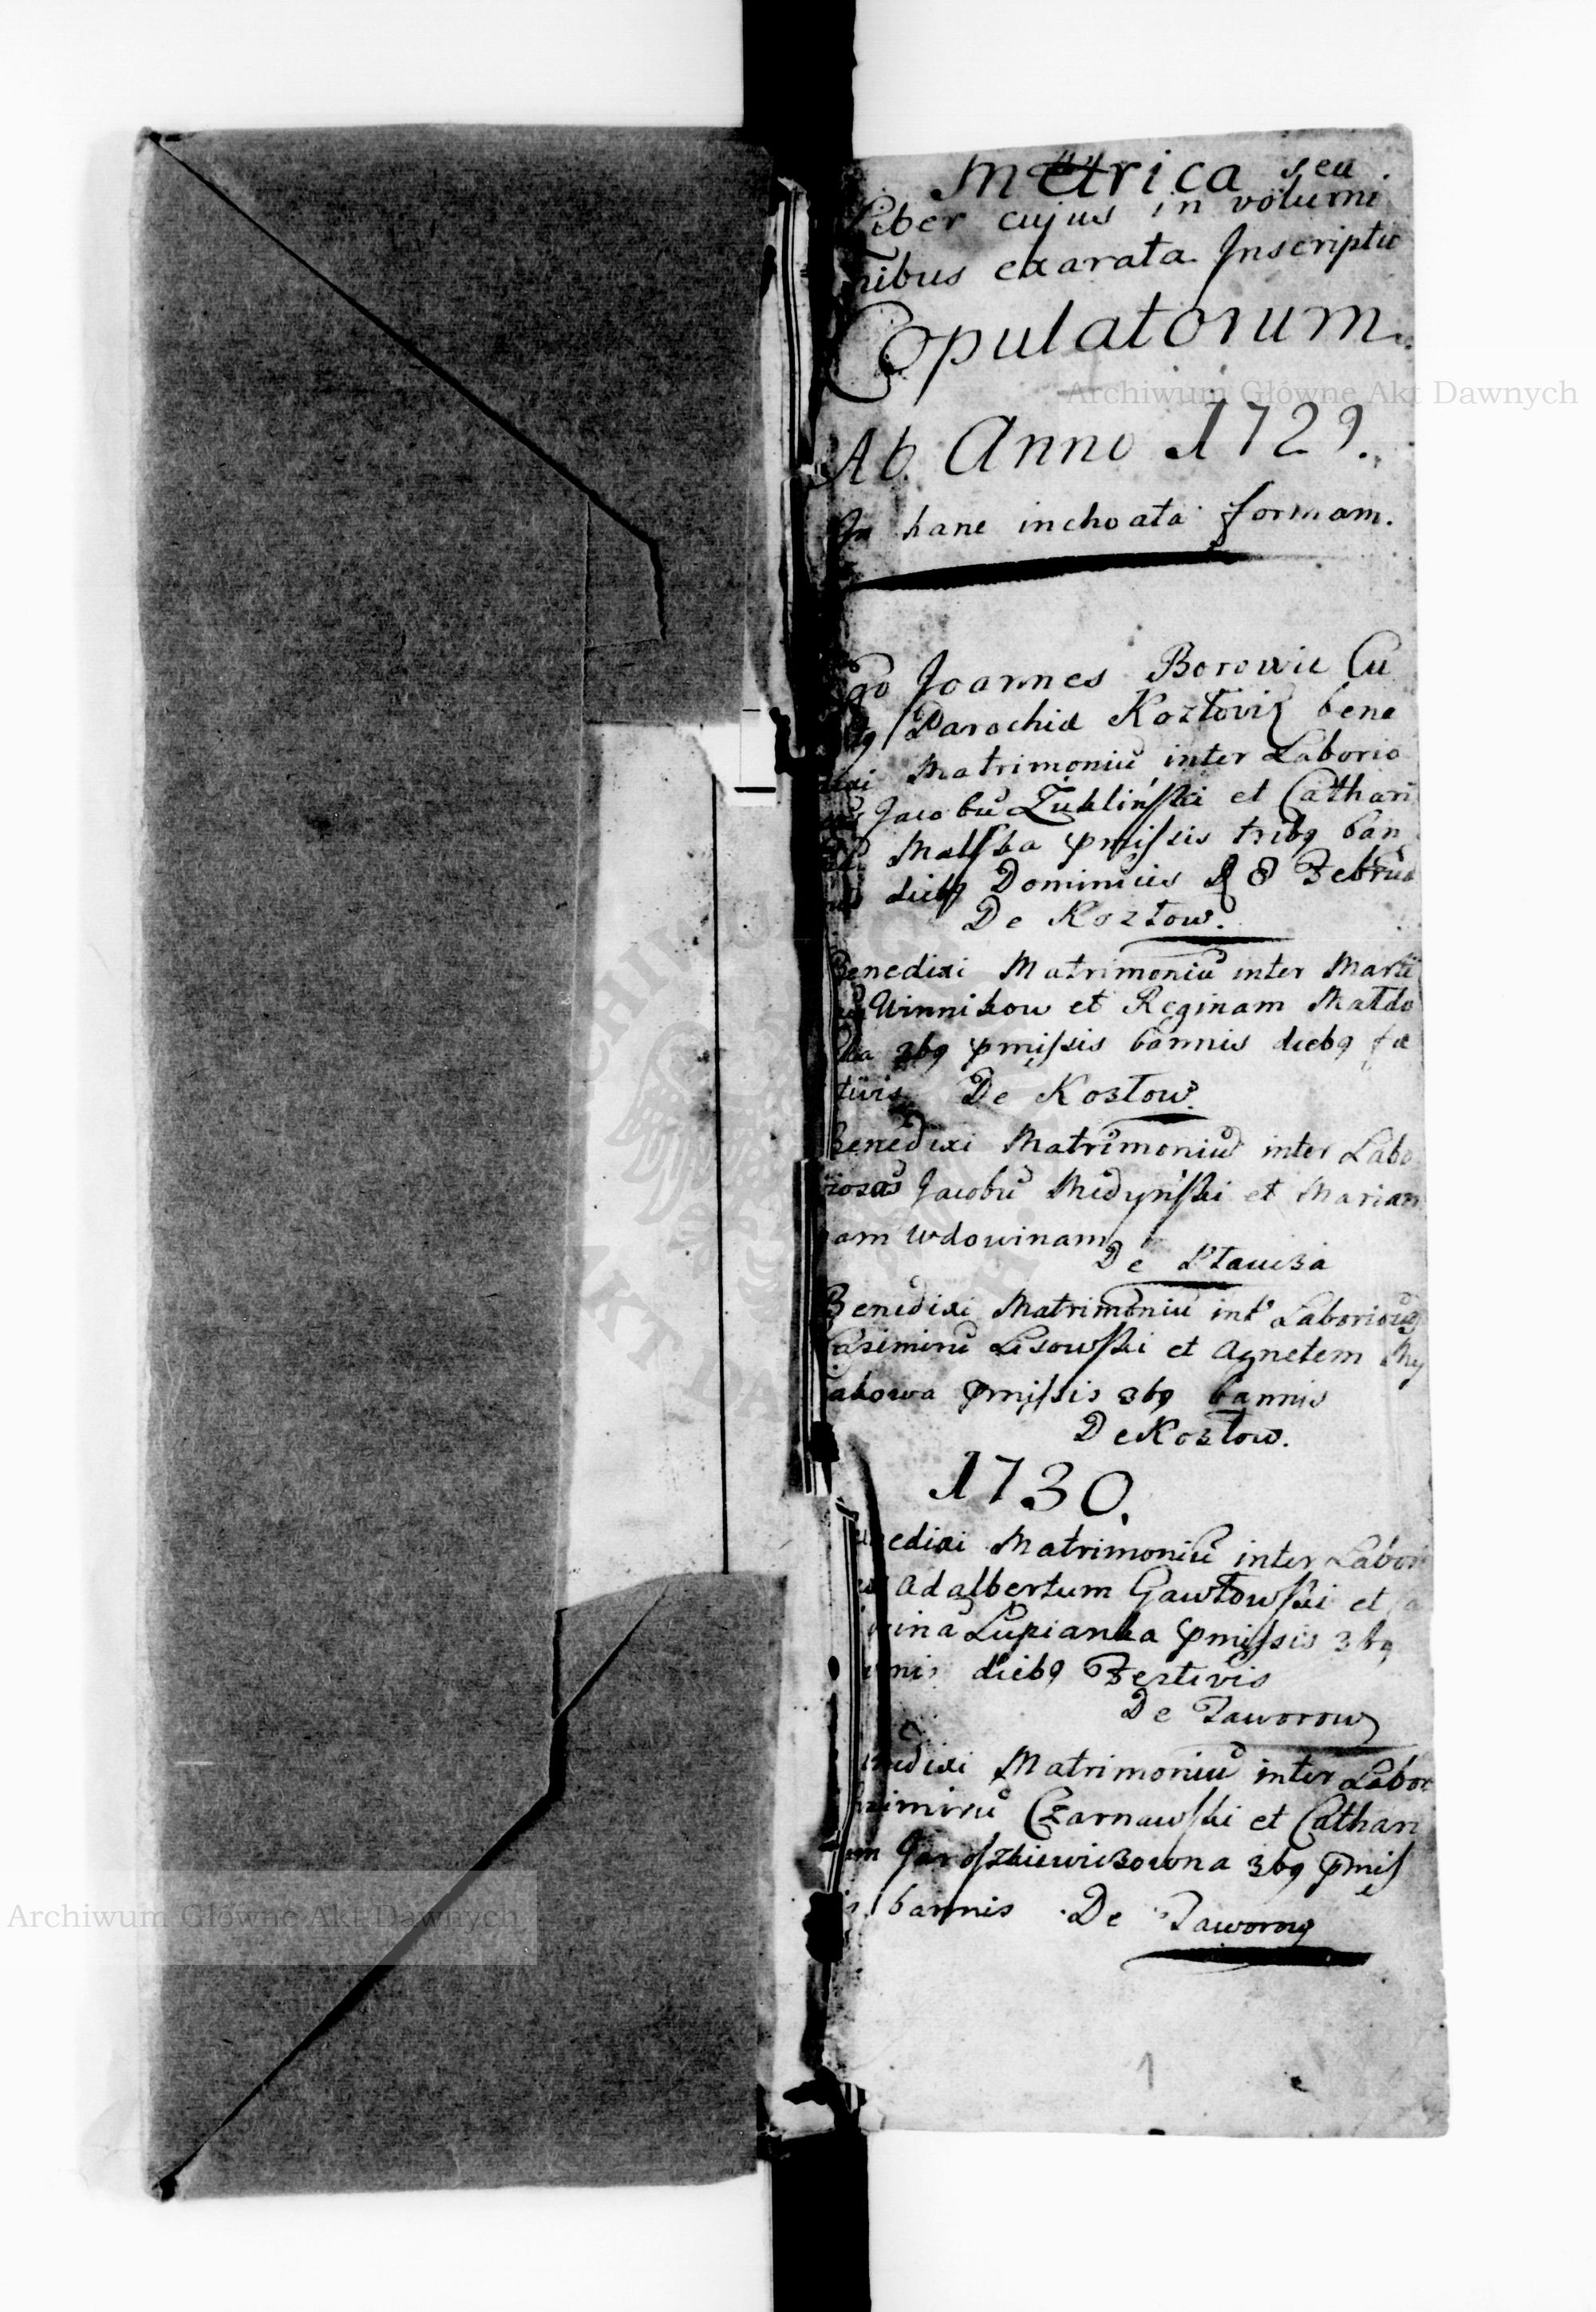 Metrica seu
Liber cujus in volumi
nibus exarata Inscriptio
Copulatorum.
Ab Anno 1729.
In hanc inchoata formam.
Ego Joannes Borowic Cu
Parochiæ Kozłovię bene
dixi Matrimoniū inter Laborio
Jacobū Żuklińſki et Cathari
Malſka pmiſsis tribq ban
nis diebq Dominicis 8 Februa
De Kozłow.
Benedixi Matrimoniū inter Marti
Winnikow et Reginam Małdo
ſka 3bq pmiſsis bannis diebq fe
stivis De Kozłow.
Benedixi Matrimoniū inter Labo
riosos Jacobū Medyńſki et Marian
nam Wdowinam
De
Benedixi Matrimoniū intr Laboriosū
Casimirū Lisowſki et Agnetem My
akowa pmiſsis 3bq bannis
De Kozłow.
1730.
Benedixi Matrimoniū inter Labor
Adalbertum Gawłowſki et
Lupianka pmiſsis 3bq
bannis diebq Festivis
De Jaworow
Benedixi Matrimoniū inter Labor
Casimirū Czarnawſki et Cathari
nam Jaroſzkiewiczowna 3bq pmiſ
sis bannis De Jaworow
1
Archiwum Główne Akt Dawnych
Archiwum Główne Akt Dawnych